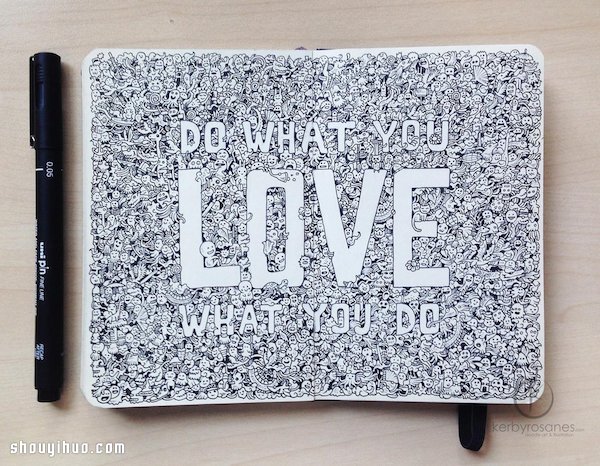 DO WHAT YOU
LOVE
WHAT YOU DO
0.05
uni pin FINE LINE
kerbyrosanes.com
shouyihuo.com